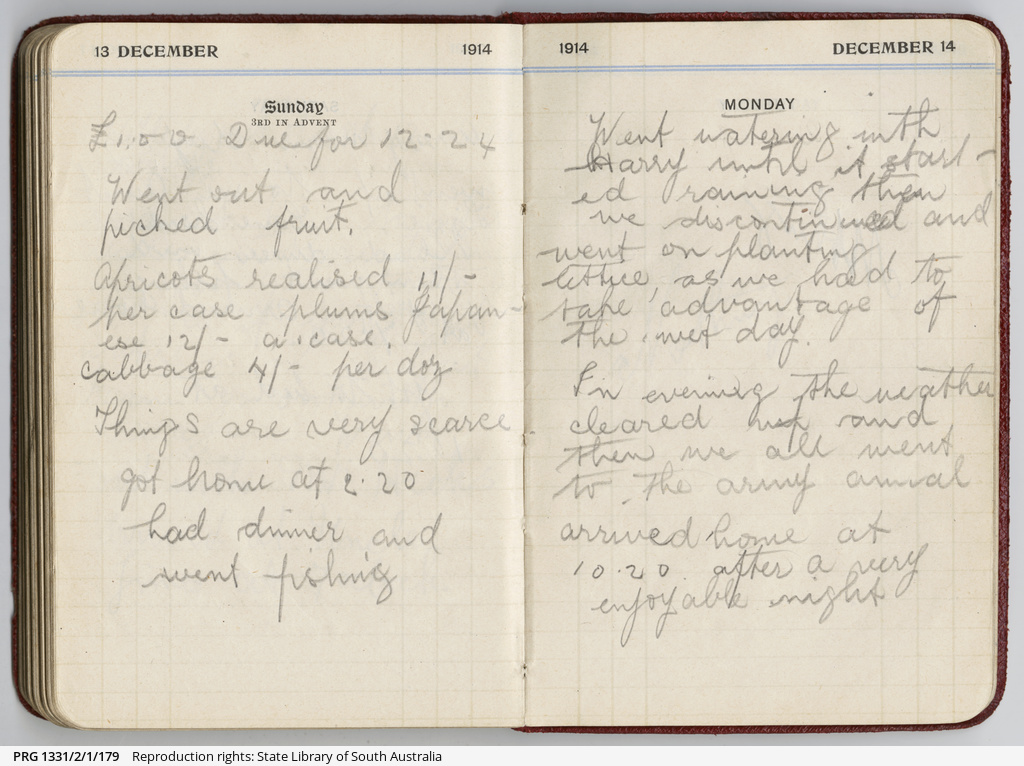 13 DECEMBER 1914
Sunday
3RD IN ADVENT
£1.0.0 Due for 12-24
Went out and
picked fruit.
Apricots realised 11/-
per case plums Japan-
ese 12/- a case.
cabbage 4/- per doz
Things are very scarce
got home at 2.20
had dinner and
went fishing
1914 DECEMBER 14
MONDAY
Went watering with
Harry until it start-
ed raining then
we discontinued and
went on planting
lettice, as we had to
take advantage of
the wet day.
In evening the weather
cleared up and
then we all went
to the army anual
arrived home at
10.20 after a very
enjoyable night
PRG 1331/2/1/179 Reproduction rights: State Library of South Australia